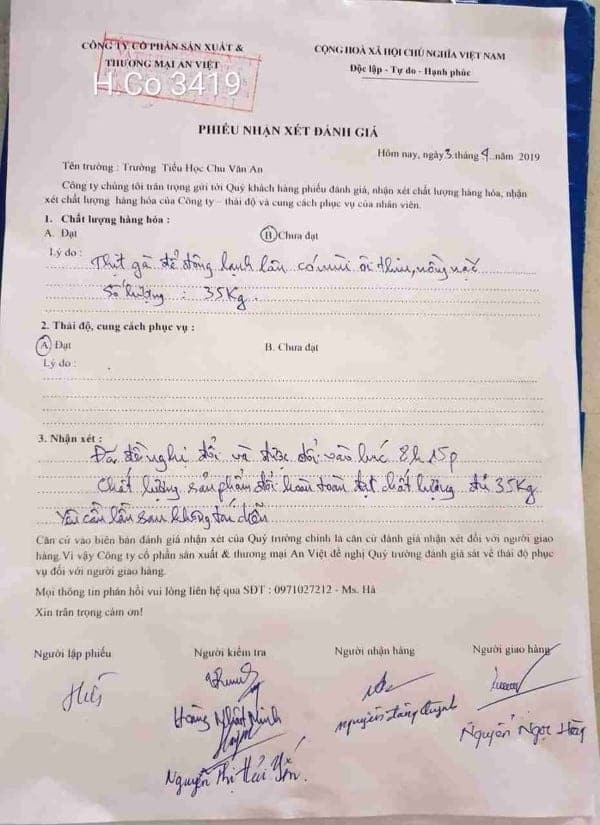 CÔNG TY CỔ PHẦN SẢN XUẤT &
THƯƠNG MẠI AN VIỆT
H.Co 3419
CỘNG HOÀ XÃ HỘI CHỦ NGHĨA VIỆT NAM
Độc lập - Tự do - Hạnh phúc
PHIẾU NHẬN XÉT ĐÁNH GIÁ
Hôm nay, ngày 3 tháng 4 năm 2019
Tên trường : Trường Tiểu Học Chu Văn An
Công ty chúng tôi trân trọng gửi tới Quý khách hàng phiếu đánh giá, nhận xét chất lượng hàng hóa, nhận
xét chất lượng hàng hóa của Công ty – thái độ và cung cách phục vụ của nhân viên.
1. Chất lượng hàng hóa :
A. Đạt B. Chưa đạt
Lý do : Thịt gà để đông lạnh lâu có mùi ôi thiu, nồng nặc
Số lượng : 35Kg.
2. Thái độ, cung cách phục vụ :
A. Đạt B. Chưa đạt
Lý do :
3. Nhận xét :
Đã đề nghị đổi và được đổi vào lúc 8h15p
Chất lượng sản phẩm đổi hoàn toàn đạt chất lượng đủ 35Kg
Yêu cầu lần sau không tái diễn
Căn cứ vào biên bản đánh giá nhận xét của Quý trường chính là căn cứ đánh giá nhận xét đối với người giao
hàng. Vì vậy Công ty cổ phần sản xuất & thương mại An Việt đề nghị Quý trường đánh giá sát về thái độ phục
vụ đối với người giao hàng.
Mọi thông tin phản hồi vui lòng liên hệ qua SĐT : 0971027212 - Ms. Hà
Xin trân trọng cảm ơn!
Người lập phiếu Người kiểm tra Người nhận hàng Người giao hàng
Hoàng Nhật Minh
Nguyễn Thị Hải Yến
Nguyễn Đăng Quỳnh
Nguyễn Ngọc